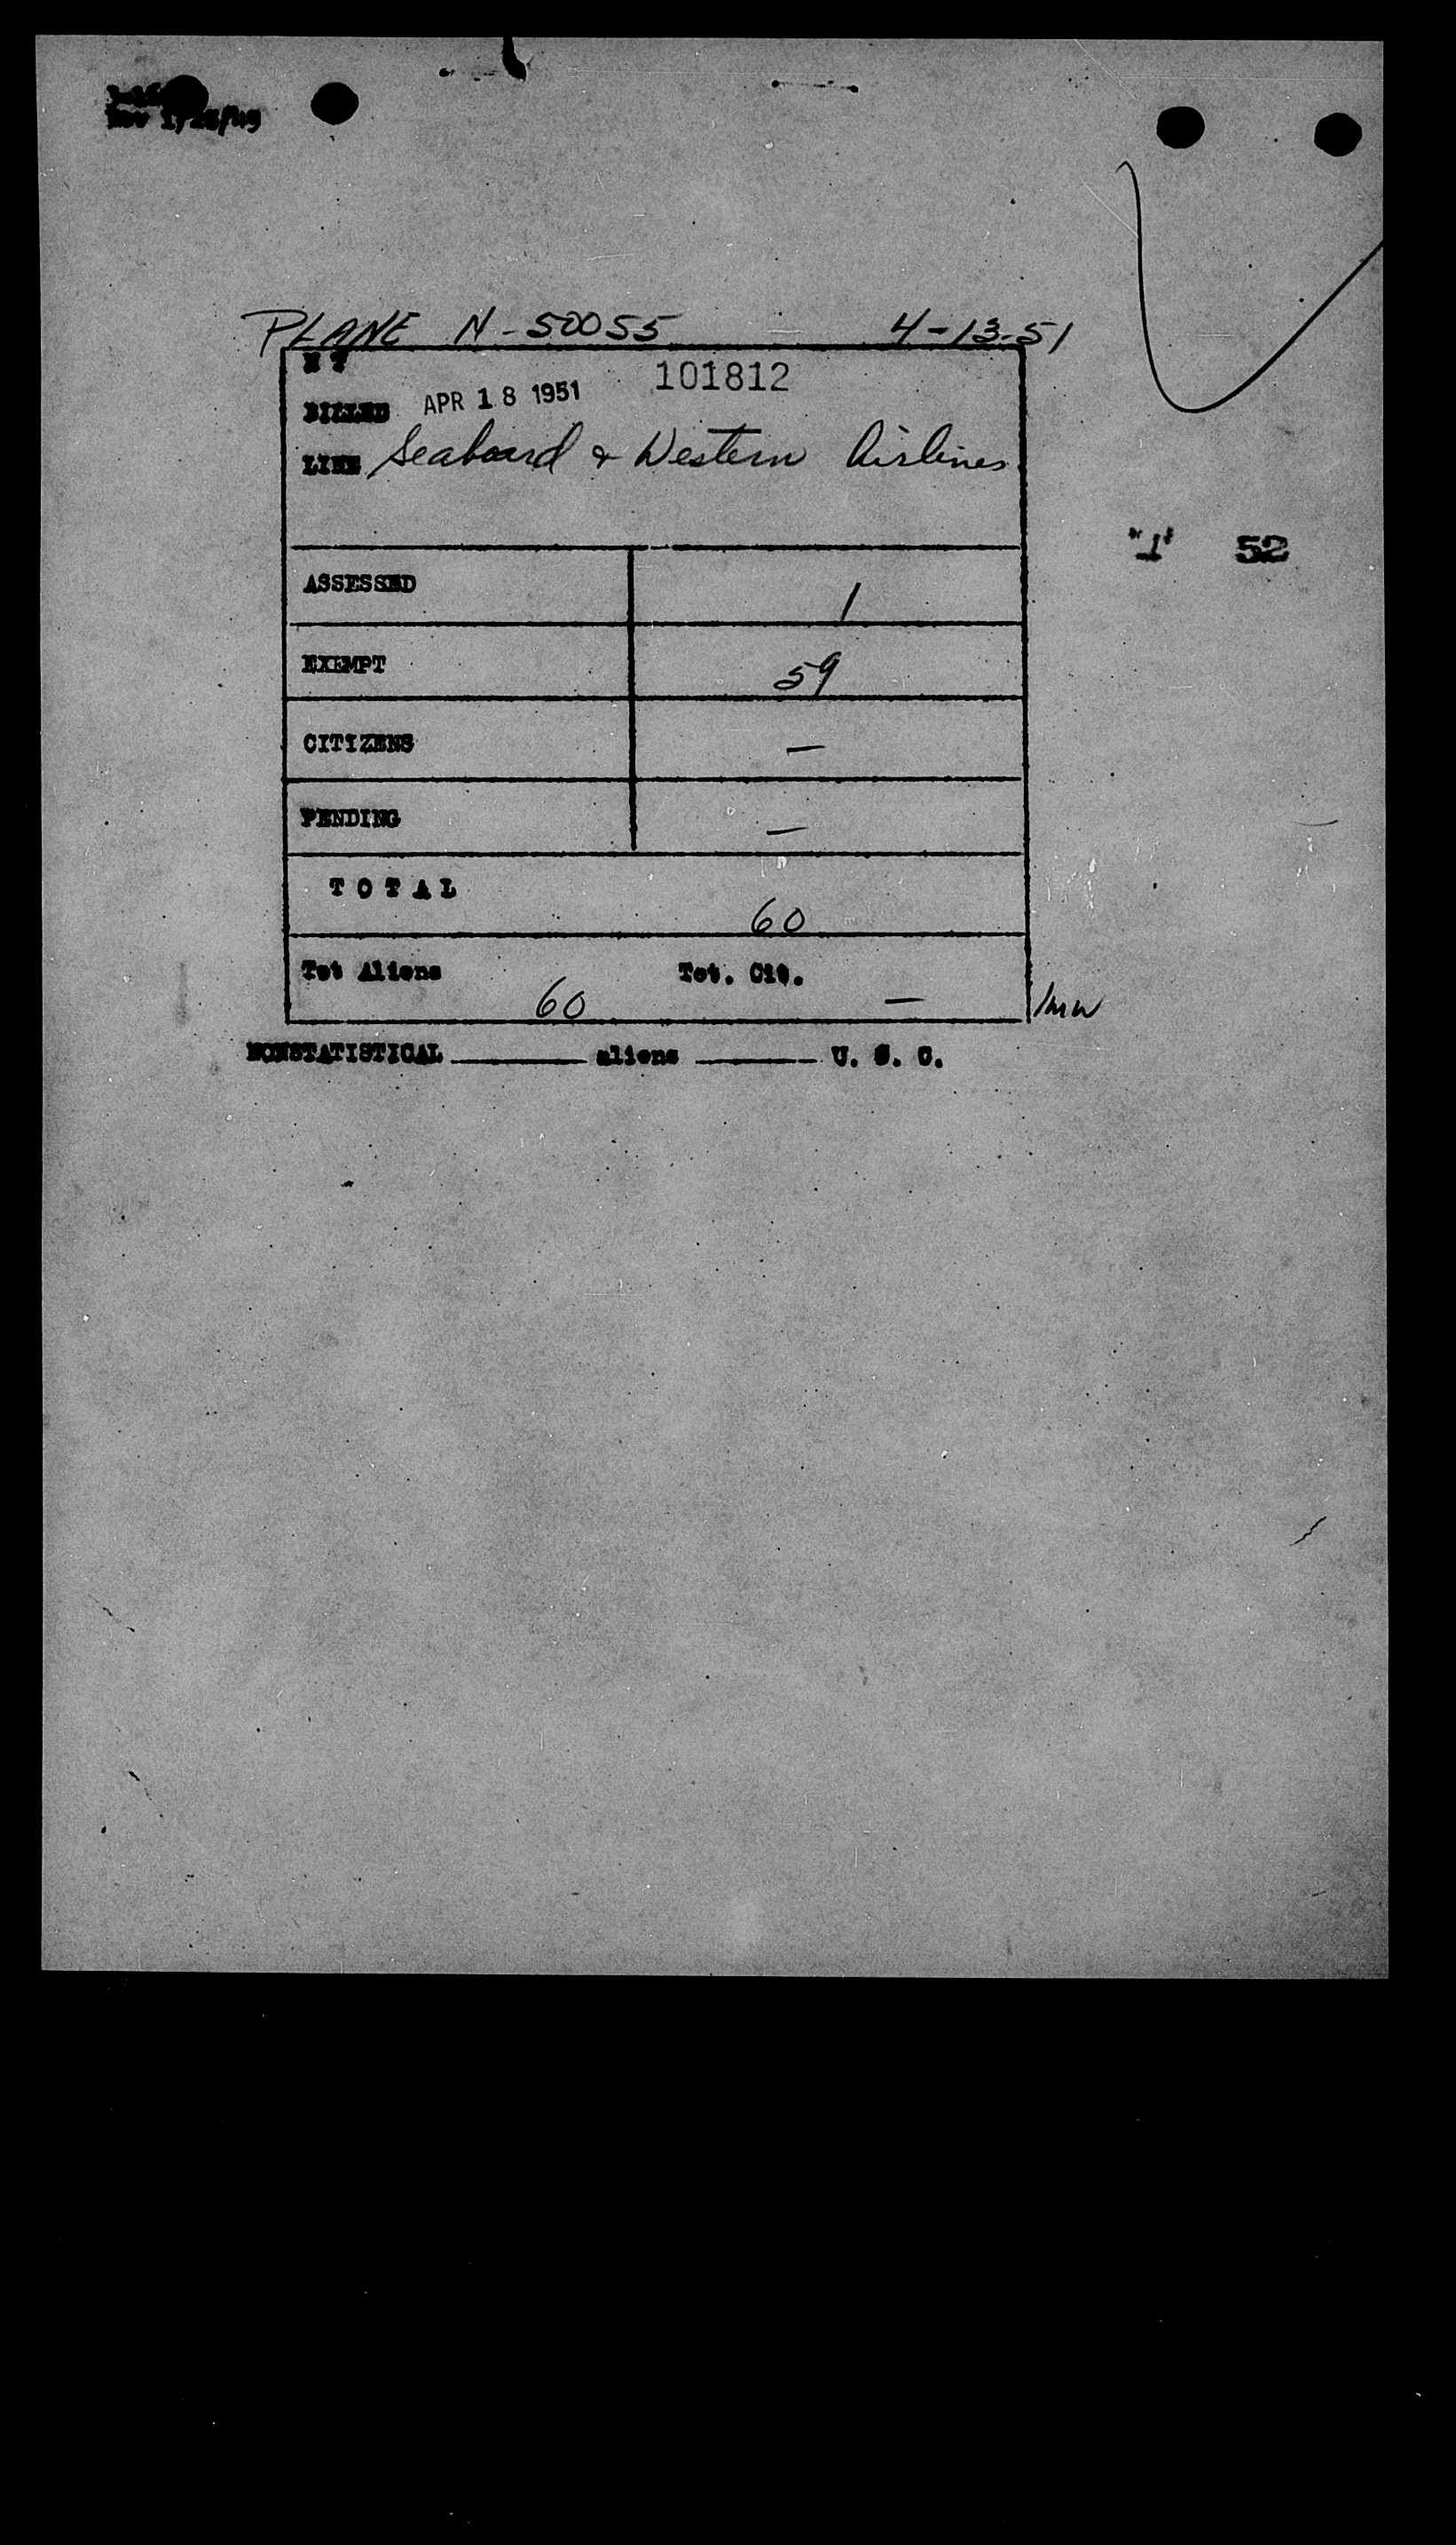 Rev 1/25/49
PLANE N-50055 4-13-51
N Y
BILLED APR 18 1951 101812
LINE Seaboard & Western Airlines
"1" 52
ASSESSED 1
EXEMPT 59
CITIZENS —
PENDING —
TOTAL
60
Tot Aliens Tot. Cit.
60 — /mw
NONSTATISTICAL ________ aliens ________ U. S. C.